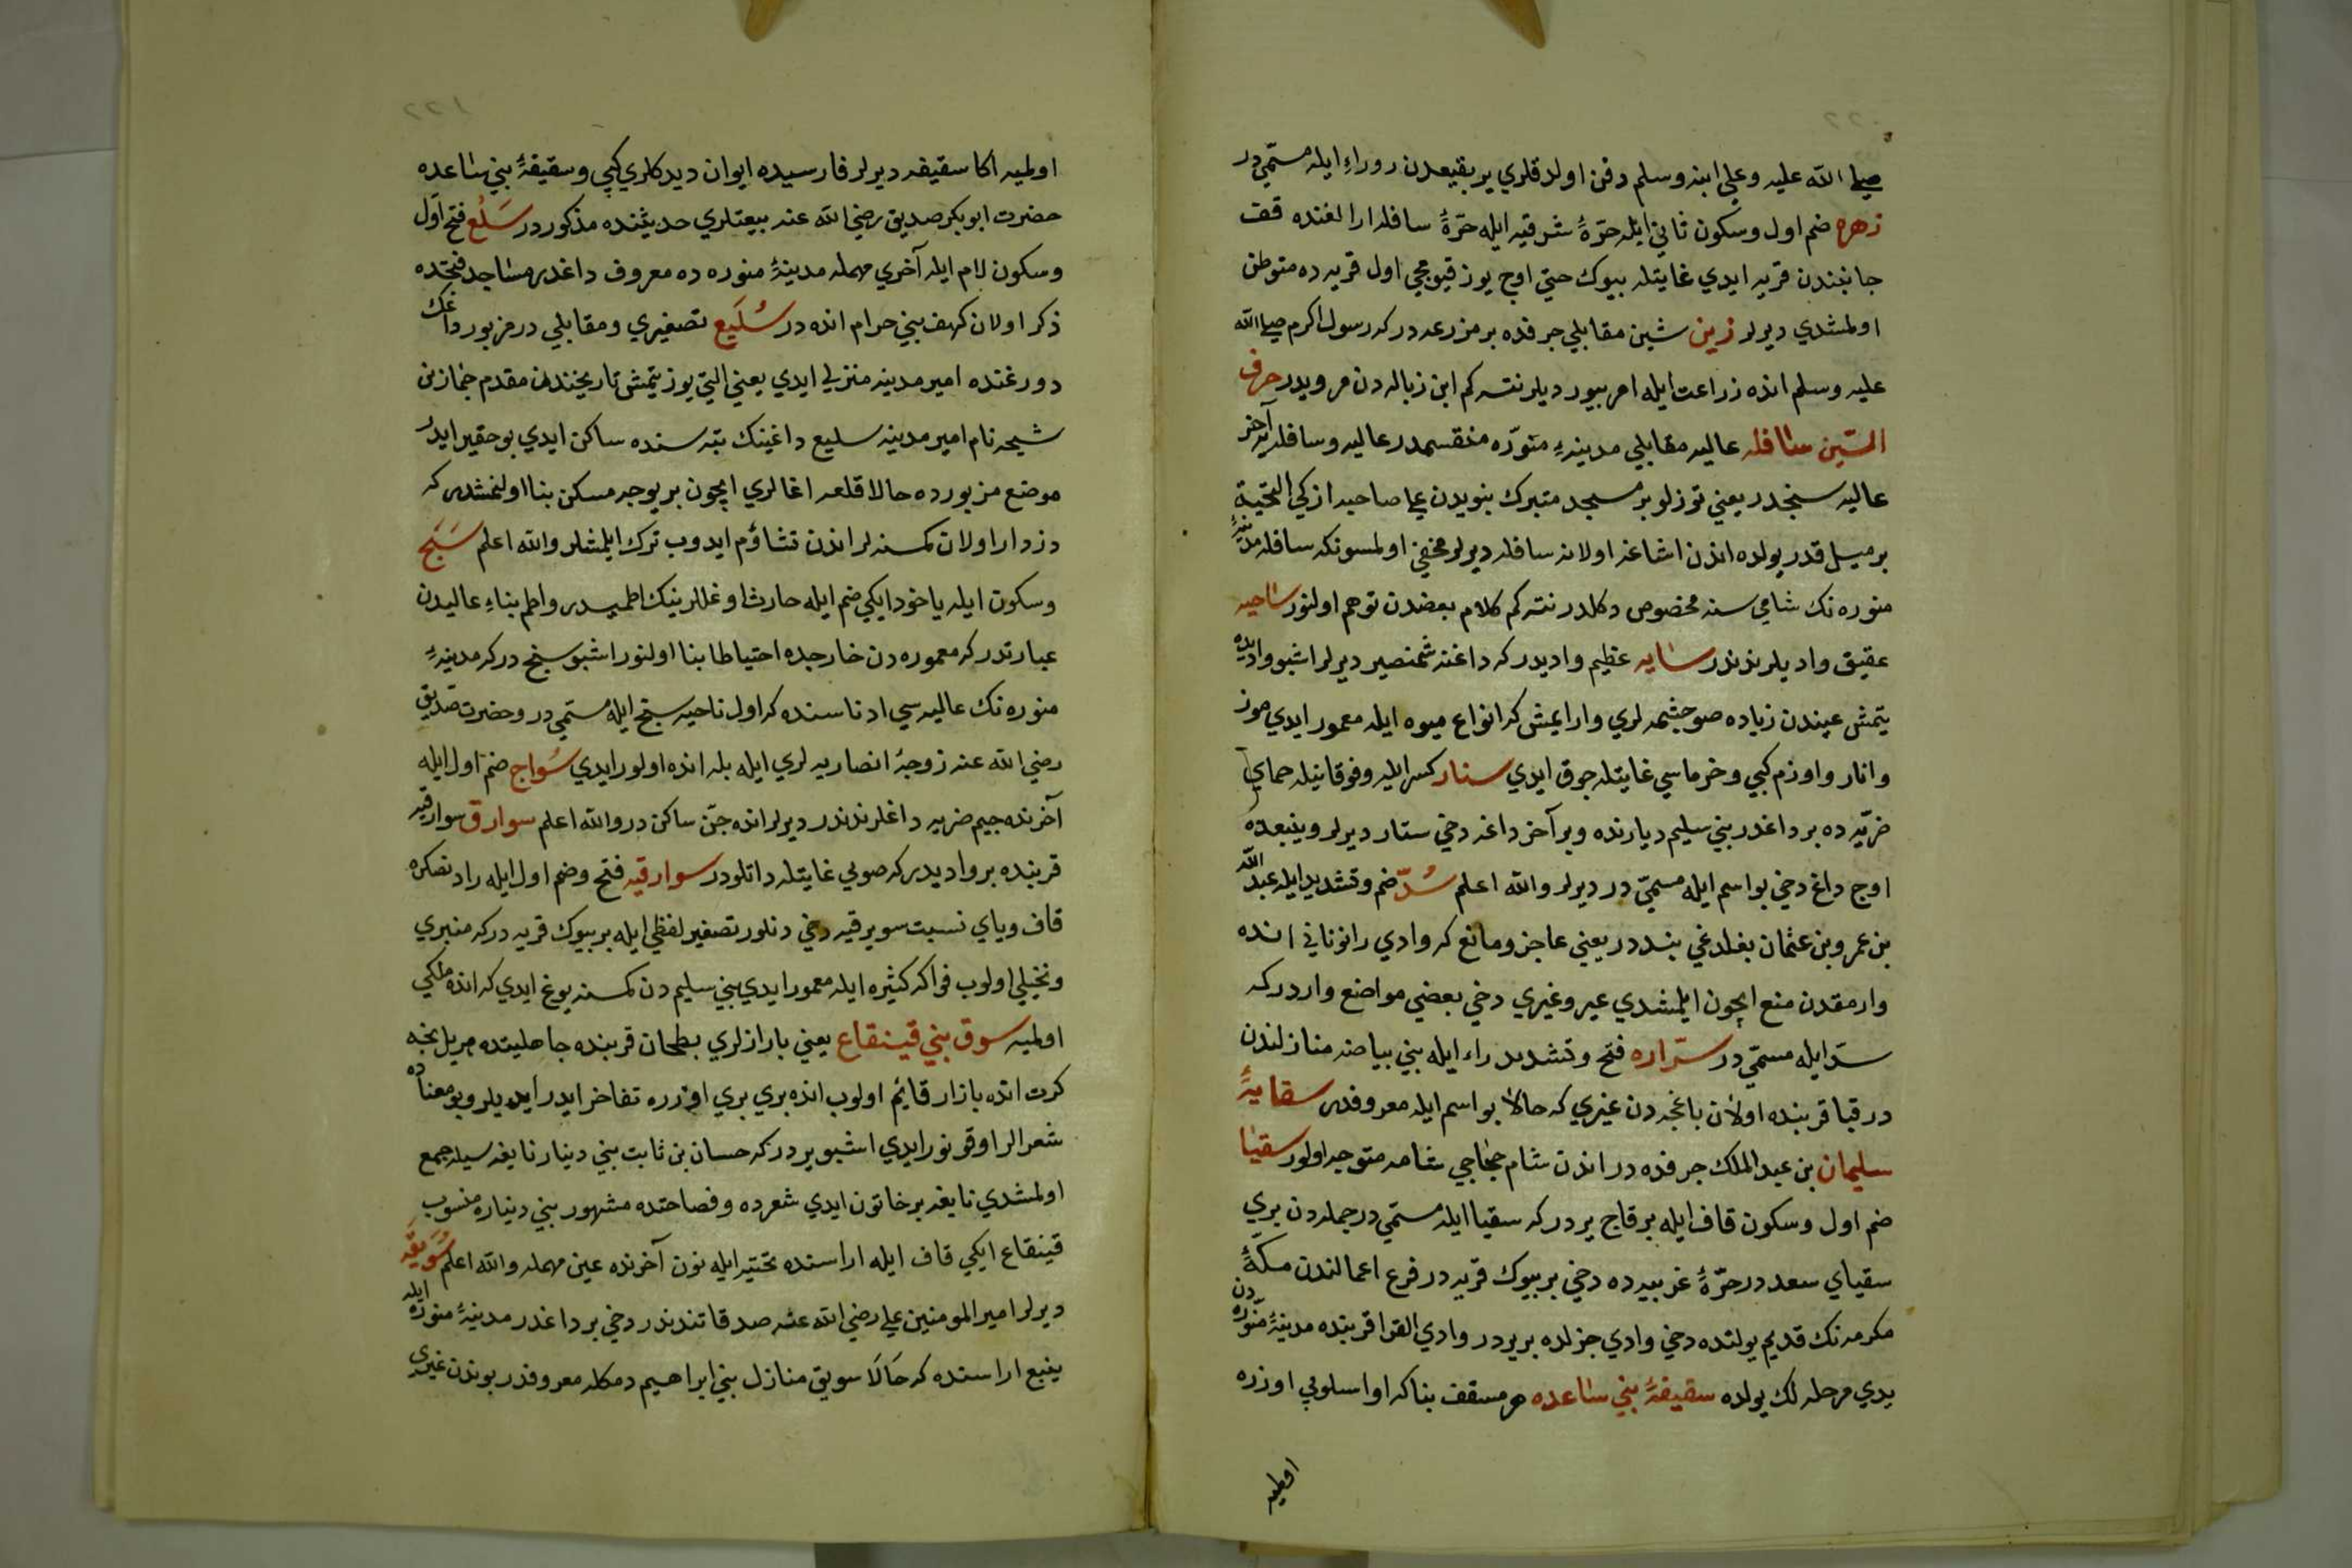 صلى الله عليه وعلى ابنه وسلم دفن اولدقلري ير بقيعدن روراء ايله مسمّي در
زهره ضم اول وسكون ثاني ايله حرّۀ شرقيه ايله حرّۀ سافله ارالغنده قف
جانبندن قريه ايدي غايتله بيوك حتي اوچ يوز قيومجي اول قريه ده متوطن
اولمشدي ديرلر زين شين مقابلي جرفده بر مزرعه در كه رسول اكرم صلى الله
عليه وسلم انده زراعت ايله امر بيورديلر نته كم ابن زباله دن مرويدر حرف
السّين سافله عاليه مقابلي مدينهء منوّره منقسمدر عاليه وسافله يه آخر
عاليه سنحدر يعني توزلو بر مسجد متبرك بنويدن على صاحبه ازكي التحية
بر ميل قدر يولده اندن اشاغه اولانه سافله ديرلر مخفي اولمسونكه سافله مدينۀ
منوره نك شامي سنه مخصوص دكلدر نته كم كلام بعضدن توهم اولنور ساحيه
عقيق واديلرندندر سايه عظيم واديدر كه داغنه شمنصير ديرلر اشبو واديده
يتمش عيندن زياده صو چشمه لري وار ايمش كه انواع ميوه ايله معمور ايدي موز
وانار واوزم كبي وخرماسي غايتله چوق ايدي ستار كسر ايله وفوقانيله حماي
ضريّه ده بر داغدر بني سليم ديارنده وبر آخر داغه دخي ستار ديرلر وينبعده
اوچ داغ دخي بو اسم ايله مسمّي در ديرلر والله اعلم سُدّ ضم وتشديد ايله عبد الله
بن عمرو بن عثمان بغلدغي بنددر يعني عاجز ومانع كه وادي رانوناني انده
وارمقدن منع ايچون ايلمشدي عير وغيري دخي بعضي مواضع واردر كه
سدّ ايله مسمّي در سرّاره فتح وتشديد راء ايله بني بياضه منازلندن
در قبا قربنده اولان باغچه دن غيري كه حالا بو اسم ايله معروفدر سقايۀ
سليمان بن عبد الملك جرفده در اندن شام حجاجي شامه متوجه اولور سقيا
ضم اول وسكون قاف ايله بر قاچ يردر كه سقيا ايله مسمّي در جمله دن بري
سقياي سعد در حرّۀ غربيه ده دخي بر بيوك قريه در فرع اعمالندن مكّۀ
مكرمه نك قديم يولنده دخي وادي جزلده بر يردر وادي القرا قربنده مدينۀ منوره دن
يدي مرحله لك يولده سقيفۀ بني ساعده هر مسقف بنا كه اوا اسلوبي اوزره
اولميه
اولميه اكا سقيفه ديرلر فارسيده ايوان ديدكلري كبي وسقيفۀ بني ساعده
حضرت ابوبكر صديق رضي الله عنه بيعتلري حديثنده مذكور در سَلْع فتح اوّل
وسكون لام ايله آخري مهمله مدينۀ منوره ده معروف داغدر مساجد فتحده
ذكر اولان كهف بني حرام انده در سُلَيع تصغيري ومقابلي در مزبور داغك
دورغنده امير مدينه منزلي ايدي يعني التي يوز يتمش تاريخندن مقدم جماز بن
شيحه نام امير مدينه سليع داغينك تپه سنده ساكن ايدي بو حقير ايدر
موضع مزبورده حالا قلعه اغالري ايچون بر يوجه مسكن بنا اولنمشدر كه
دزدار اولان كمسنه لر اندن تشاؤم ايدوب ترك ايلمشلر والله اعلم سَنح
وسكون ايله ياخود ايكي ضم ايله حارث اوغللرينك اطميدر واطم بناء عاليدن
عبارتدر كه معموره دن خارجده احتياطا بنا اولنور اشبو سنح در كه مدينۀ
منوره نك عاليه سي ادناسنده كه اول ناحيه سنح ايله مسمّي در وحضرت صديق
رضي الله عنه زوجۀ انصاريه لري ايله بله انده اولور ايدي سُواج ضم اول ايله
آخرنده جيم ضريه داغلرندندر ديرلر انده جنّ ساكن در والله اعلم سوارق سوارقيه
قربنده بر واديدر كه صويي غايتله داتلودر سوارقيه فتح وضم اول ايله رادنصكره
قاف وياي نسبت سويرقيه دخي دنلور تصغير لفظي ايله بر بيوك قريه در كه منبري
ونخيلي اولوب فواكه كثيره ايله معمور ايدي بني سليم دن كمسنه يوغ ايدي كه انده ملكي
اولميه سوق بني قينقاع يعني بازارلري بطحان قربنده جاهليتده هر يل نيجه
كرت انده بازار قايم اولوب انده بري بري اوزره تفاخر ايدر ايديلر وبو معناده
شعرالر اوقونور ايدي اشبو يردر كه حسان بن ثابت بني دينار نابغه سيله جمع
اولمشدي نابغه بر خاتون ايدي شعرده وفصاحتده مشهور بني ديناره منسوب
قينقاع ايكي قاف ايله اراسنده تحتيه ايله نون آخرنده عين مهمله والله اعلم سُوَيقَه
ديرلر امير المومنين علي رضي الله عنه صدقاتندندر دخي بر داغدر مدينۀ منوره ايله
ينبع اراسنده كه حَالَا سويق منازل بني ابراهيم دمكله معروفدر بوندن غيري